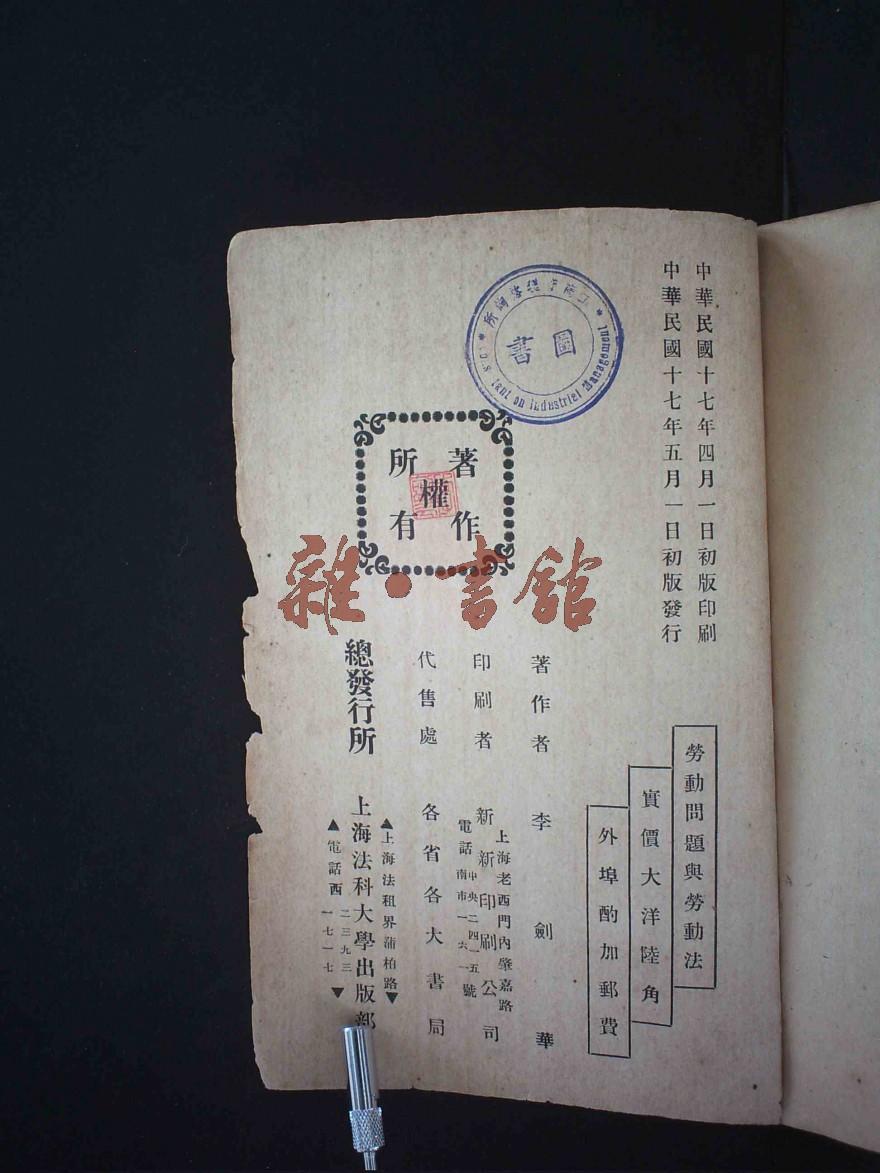 中華民國十七年四月一日初版印刷
中華民國十七年五月一日初版發行
勞動問題與勞動法
實價大洋陸角
外埠酌加郵費
圖書
on Industriel Management
著作權所有
雜·書館
著作者 李劍華
印刷者 新新印刷公司
上海老西門內肇嘉路
電話 中央二四一五 南市一六一號
代售處 各省各大書局
總發行所 上海法科大學出版部
▲上海法租界蒲柏路▼
▲電話西 二三九三 一七一七▼